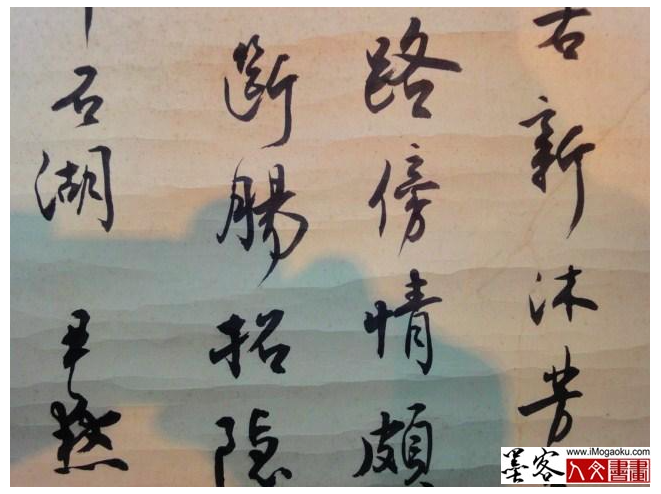 新沐芳
路傍情頗
斷腸招隱
石湖 尹默
墨客
www.iMogaoku.com
人文書畫